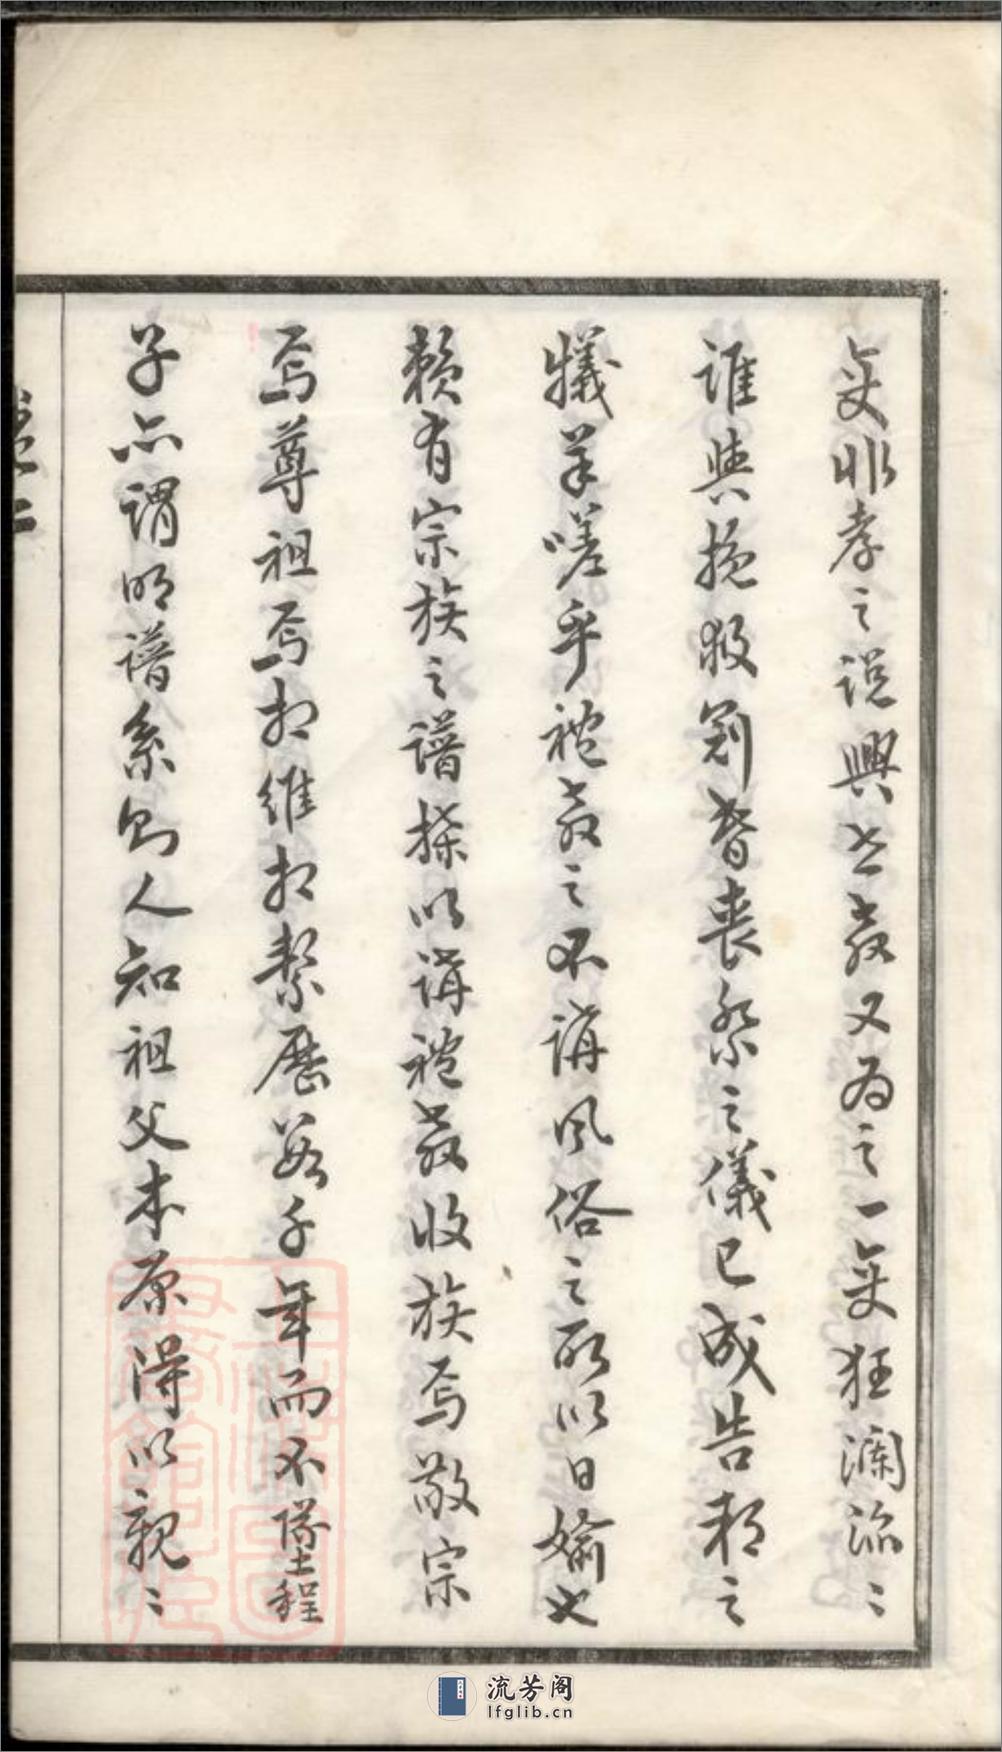 変非孝之說興亡教又為之一変狂瀾滔〻
誰與挽救冠昏喪祭之儀已成告朔之
犧羊嗟乎禮教之不講風俗之所以日媮也
賴有宗族之譜牒以講禮教收族焉敬宗
焉尊祖焉相維相繫歷數千年而不墜程
子亦謂明譜系則人知祖父本原得以親〻
流芳阁
lfglib.cn